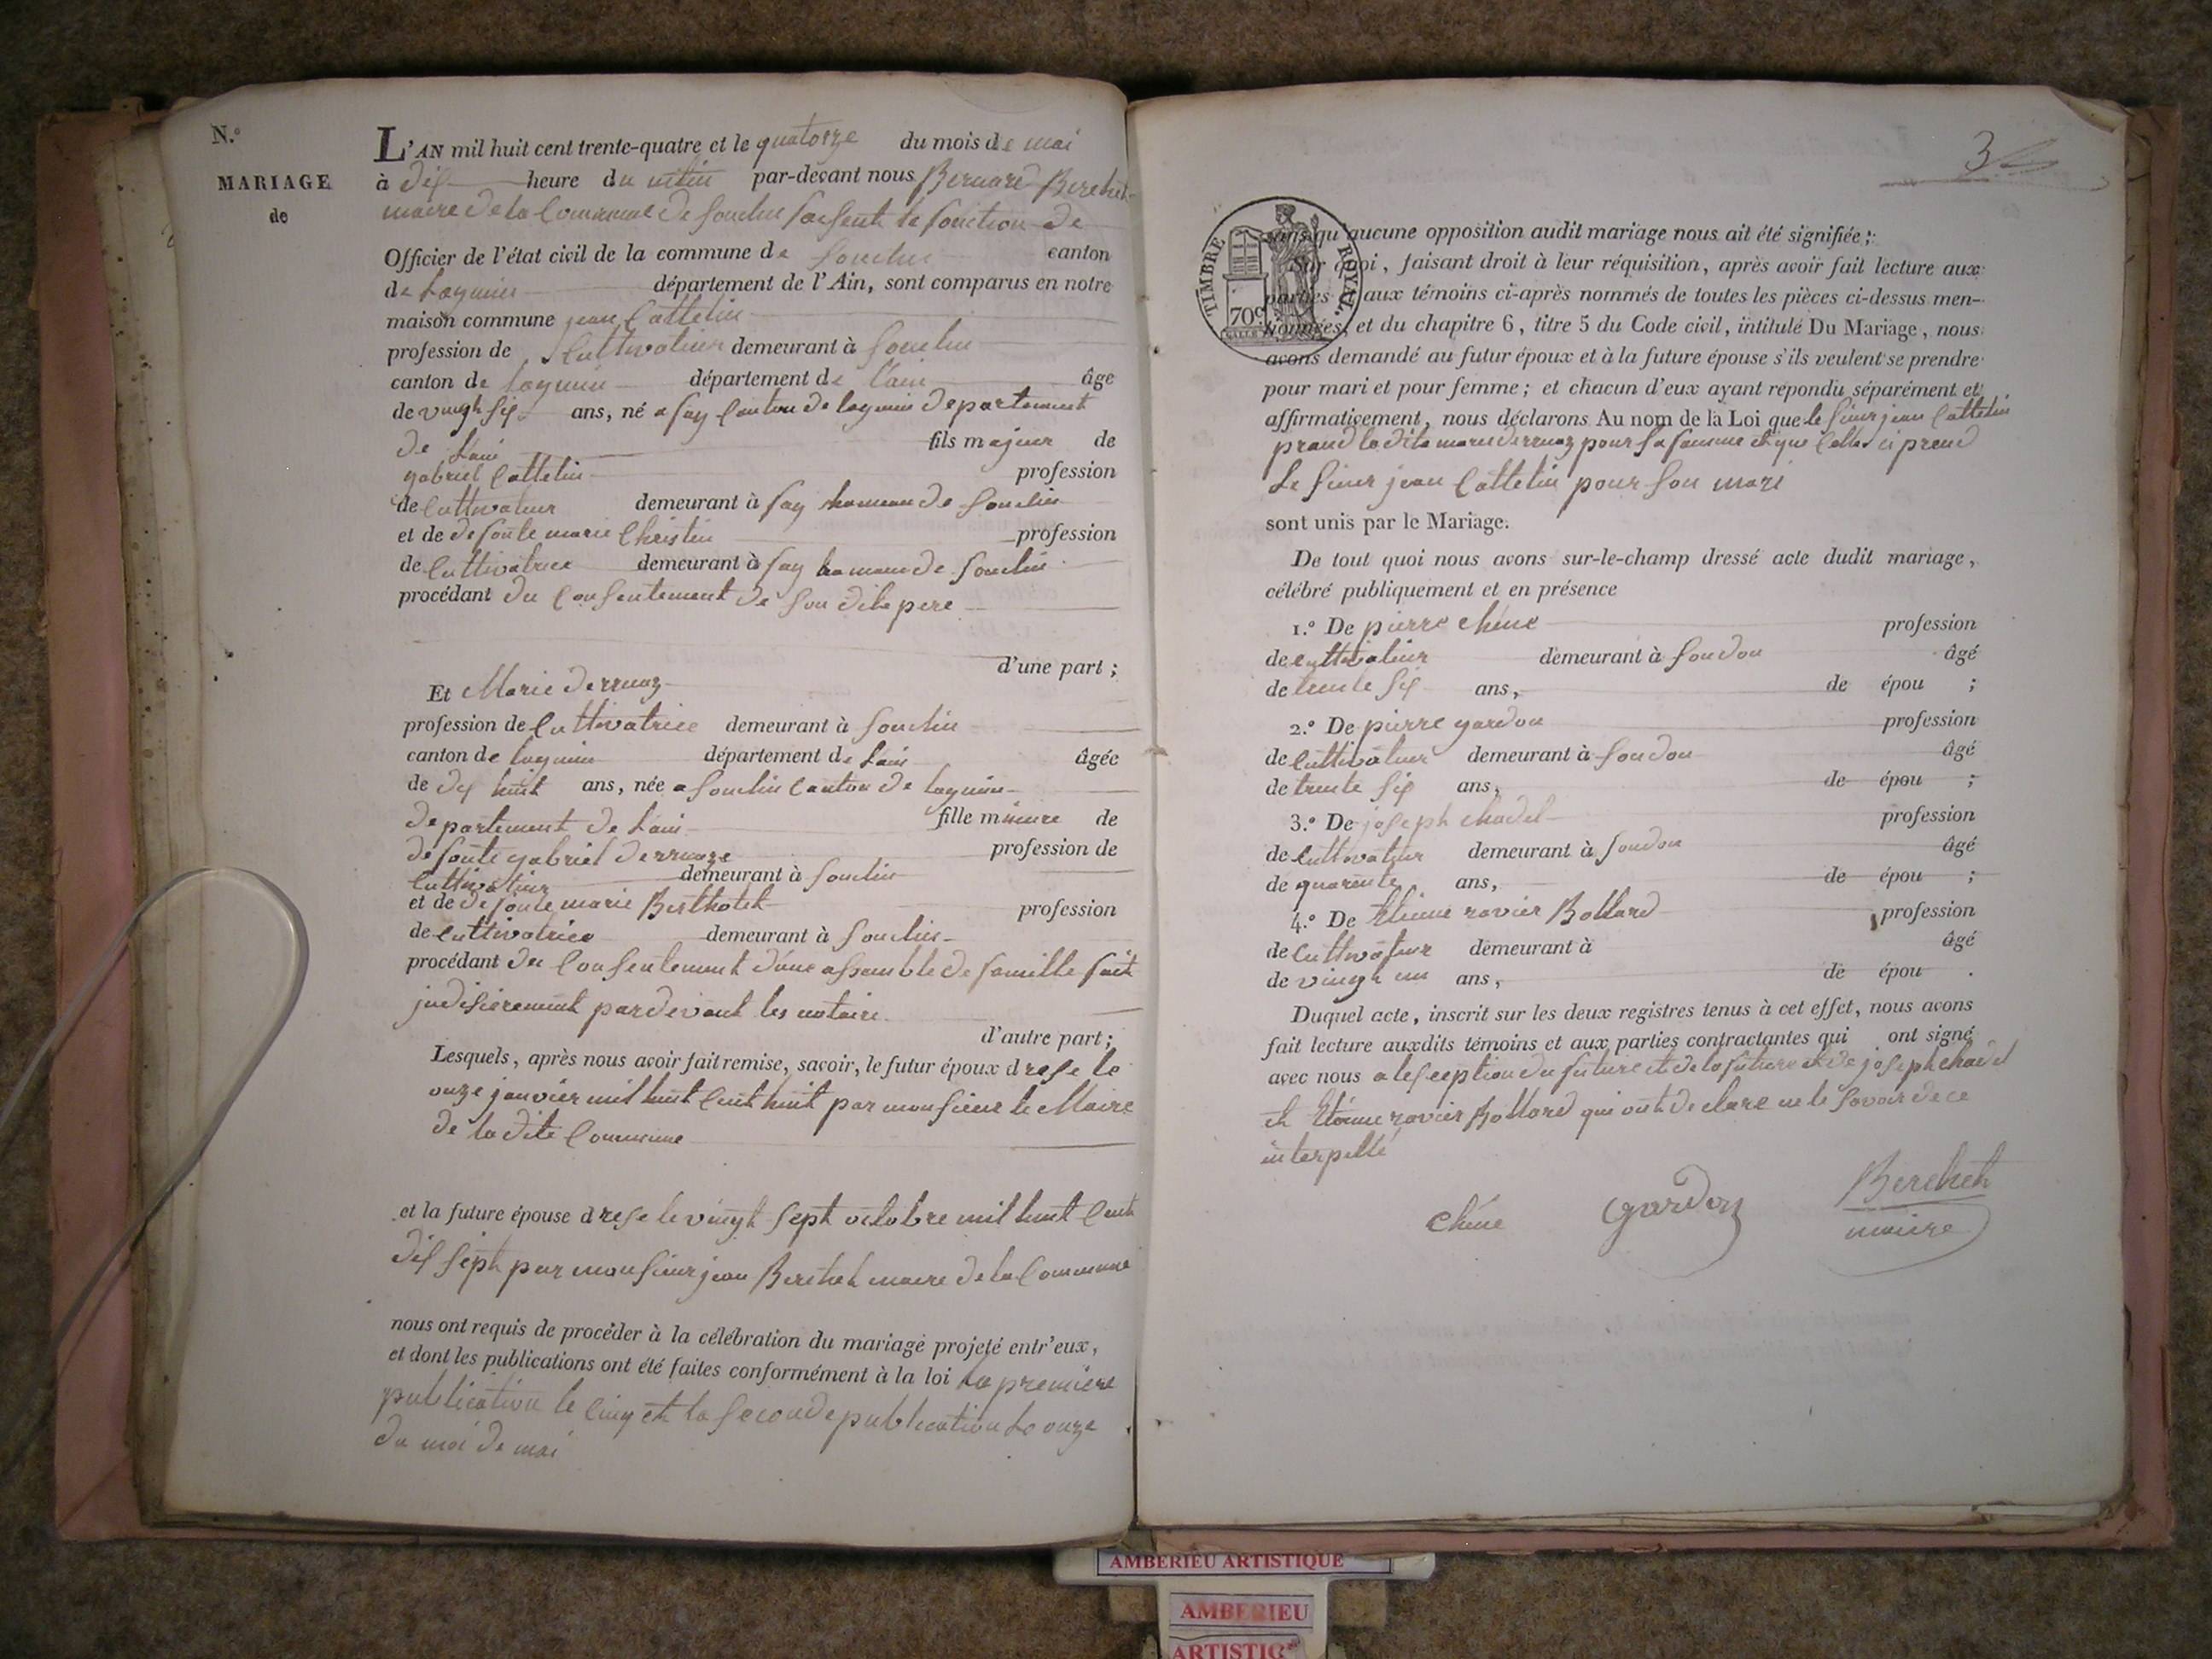 N.o
MARIAGE
de
L'AN mil huit cent trente-quatre et le quatorze du mois de mai
à dix heure du matin par-devant nous Bernard Berchet
maire de la Commune de Souclin faisent la fonction de
Officier de l'état civil de la commune de Souclin canton
de Lagnieu département de l'Ain, sont comparus en notre
maison commune jean Cattelin
profession de Cultivateur demeurant à Souclin
canton de lagnieu département de l'ain âge
de vingh six ans, né a fay Canton de lagnieu departement
de Lain fils majeur de
gabriel Cattelin profession
de Cultivateur demeurant à fay hameau de Souclin
et de defonte marie Christin profession
de Cultivatrice demeurant à fay hameau de Souclin
procédant du Consentement de son dit pere
d'une part ;
Et Marie derruaz
profession de Cultivatrice demeurant à Souclin
canton de lagnieu département de Lain âgée
de dix huit ans, née a Souclin Canton de lagnieu
departement de Lain fille mineure de
defonte gabriel derruaze profession de
Cultivateur demeurant à Souclin
et de defonte marie Berthotet profession
de Cultivatrice demeurant à Souclin
procédant du Consentement d'une assamble de famille fait
judisierement pardevant les notaire
d'autre part ;
Lesquels, après nous avoir fait remise, savoir, le futur époux drese le
onze janvier mil huit Cent huit par monsieur le Maire
de la dite Commune
et la future épouse drese le vingt sept octobre mil huit Cent
dix sept par monsieur jean Berchet maire de la Commune
nous ont requis de procéder à la célébration du mariage projeté entr'eux,
et dont les publications ont été faites conformément à la loi La premiere
publication le Cinq et la seconde publication Le onze
du moi de mai
3
TIMBRE ROYAL
70c
sans qu'aucune opposition audit mariage nous ait été signifiée ;
Sur quoi, faisant droit à leur réquisition, après avoir fait lecture aux
parties aux témoins ci-après nommés de toutes les pièces ci-dessus men-
tionnées, et du chapitre 6, titre 5 du Code civil, intitulé Du Mariage, nous
avons demandé au futur époux et à la future épouse s'ils veulent se prendre
pour mari et pour femme ; et chacun d'eux ayant répondu séparément et
affirmativement, nous déclarons Au nom de la Loi que le sieur jean Cattelin
prand la dite marie derruaz pour sa famme et que Celle ci prend
Le sieur jean Cattelin pour son mari
sont unis par le Mariage.
De tout quoi nous avons sur-le-champ dressé acte dudit mariage,
célébré publiquement et en présence
1.o De pierre chêne profession
de cultivateur demeurant à Soudon âgé
de trente six ans, de épou ;
2.o De pierre gardon profession
de Cultivateur demeurant à Soudon âgé
de trente six ans, de épou ;
3.o De joseph chadel profession
de Cultivateur demeurant à Soudon âgé
de quarente ans, de épou ;
4.o De Etienne ravier Bollard profession
de Cultivateur demeurant à âgé
de vingh un ans, de épou .
Duquel acte, inscrit sur les deux registres tenus à cet effet, nous avons
fait lecture auxdits témoins et aux parties contractantes qui ont signé
avec nous a lesception du future et de la future et de joseph chadel
et Etienne ravier Bollard qui ont declare ne le savoir de ce
interpellé
Chêne gardon Berchet
maire
AMBERIEU ARTISTIQUE
AMBERIEU
ARTISTIQ